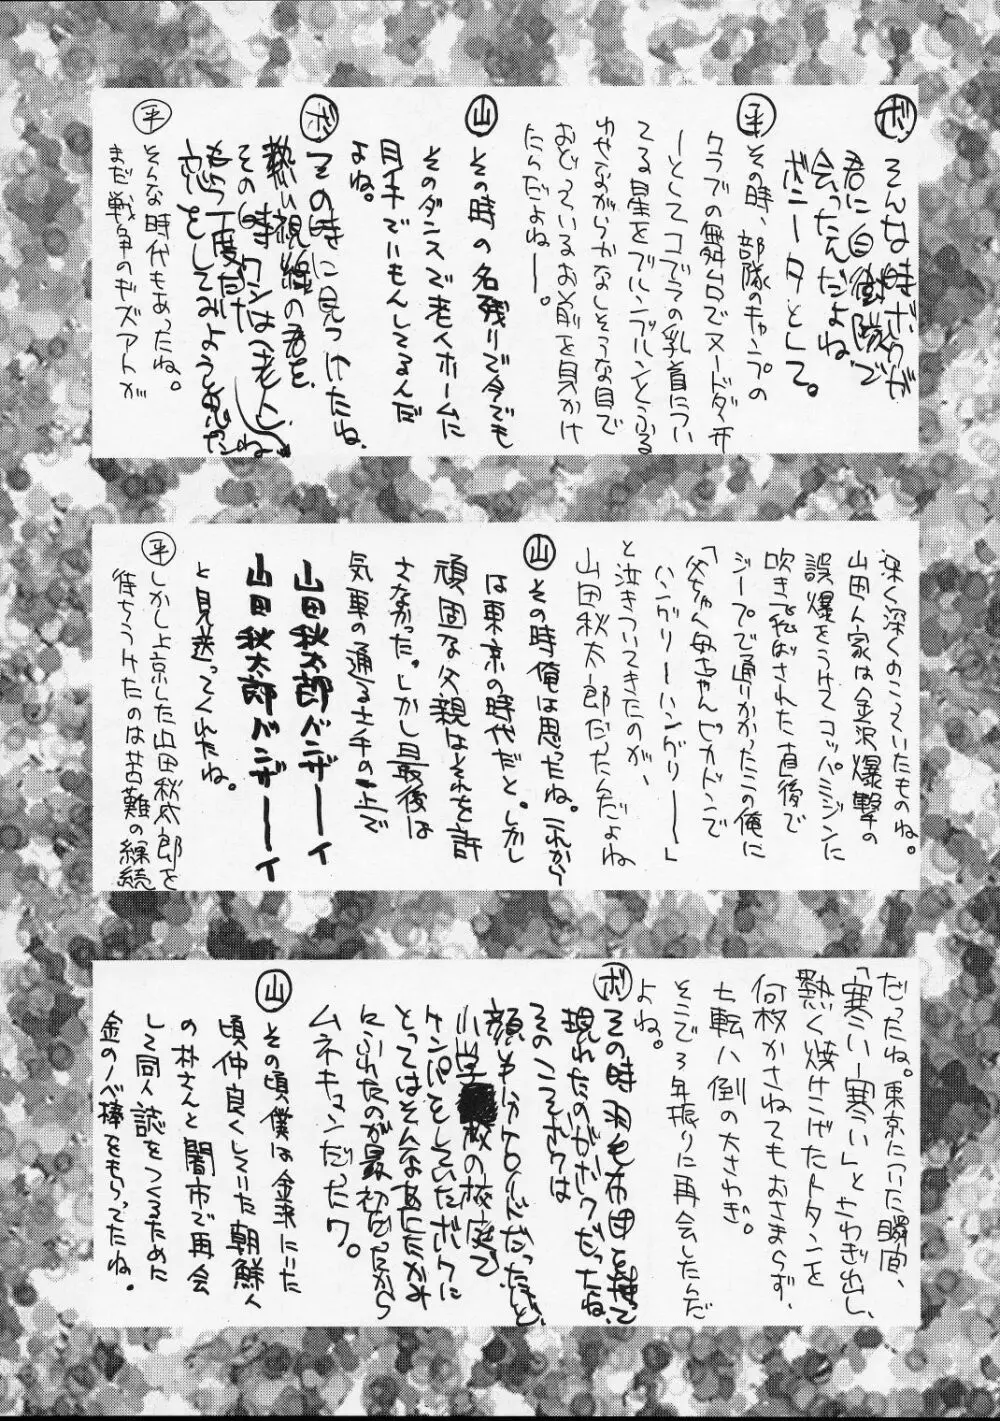 ボ そんな時ボクが
君に白樹隊で
会ったんだよね
ボニータとして。
平 その時、部隊のキャンプの
クラブの舞台でヌードダンサ
ーとしてコデブの乳首につい
てる星をブルンブルンとふる
わせながらかなしそうな目で
おどっているお前を見かけ
たらだよねー。
山 その時の名残りで今でも
そのダンスで老人ホームに
目手でいもんしてるんだ
よね。
ボ その時に見つけたね。
熱い視線の君を、
その時ワンは老人ね
もう一度だた
恋をしてみようと思た
平 そんな時代もあったね。
まだ戦争のキズアトが
深く深くのこっていたものね。
山田人家は金沢爆撃の
誤爆をうけてコッパミジンに
吹きで飛ばされた直後で
ジープで通りかかったこの俺に
「父ちゃん母ちゃんピカドンで
ハングリーハングリー――」
と泣きついてきたのが、
山田秋太郎だったんだよね
山 その時俺は思ったね。これから
は東京の時代だと。しかし
頑固な父親はそれを許
さなかった。しかし最後は
気車の通る土手の上で
山田秋太郎バンザーイ
山田秋太郎バンザーイ
と見送ってくれたね。
平 しかし上京した山田秋太郎を
待ちうけたのは苦難の継続
だったね。東京についた瞬間、
「寒いー寒いー」とさわぎ出し、
熱く焼けこげたトタンを
何枚かさねてもおさまらず、
七転八倒の大さわぎ。
そこで3年振りに再会したんだ
よね。
ボ その時羽毛布団を持って
現れたのがボクだったね。
そのころボクは
顔しか分らなかだったけど、
小学校の校庭で
ケンパをしていたボクに
とってはそんなあたたかみ
にふれたのが最初だったから
ムネキュンだったワ。
山 その頃僕は金沢にいた
頃仲良くしていた朝鮮人
の朴さんと闇市で再会
して同人誌をつくるために
金のノベ棒をもらってたね。